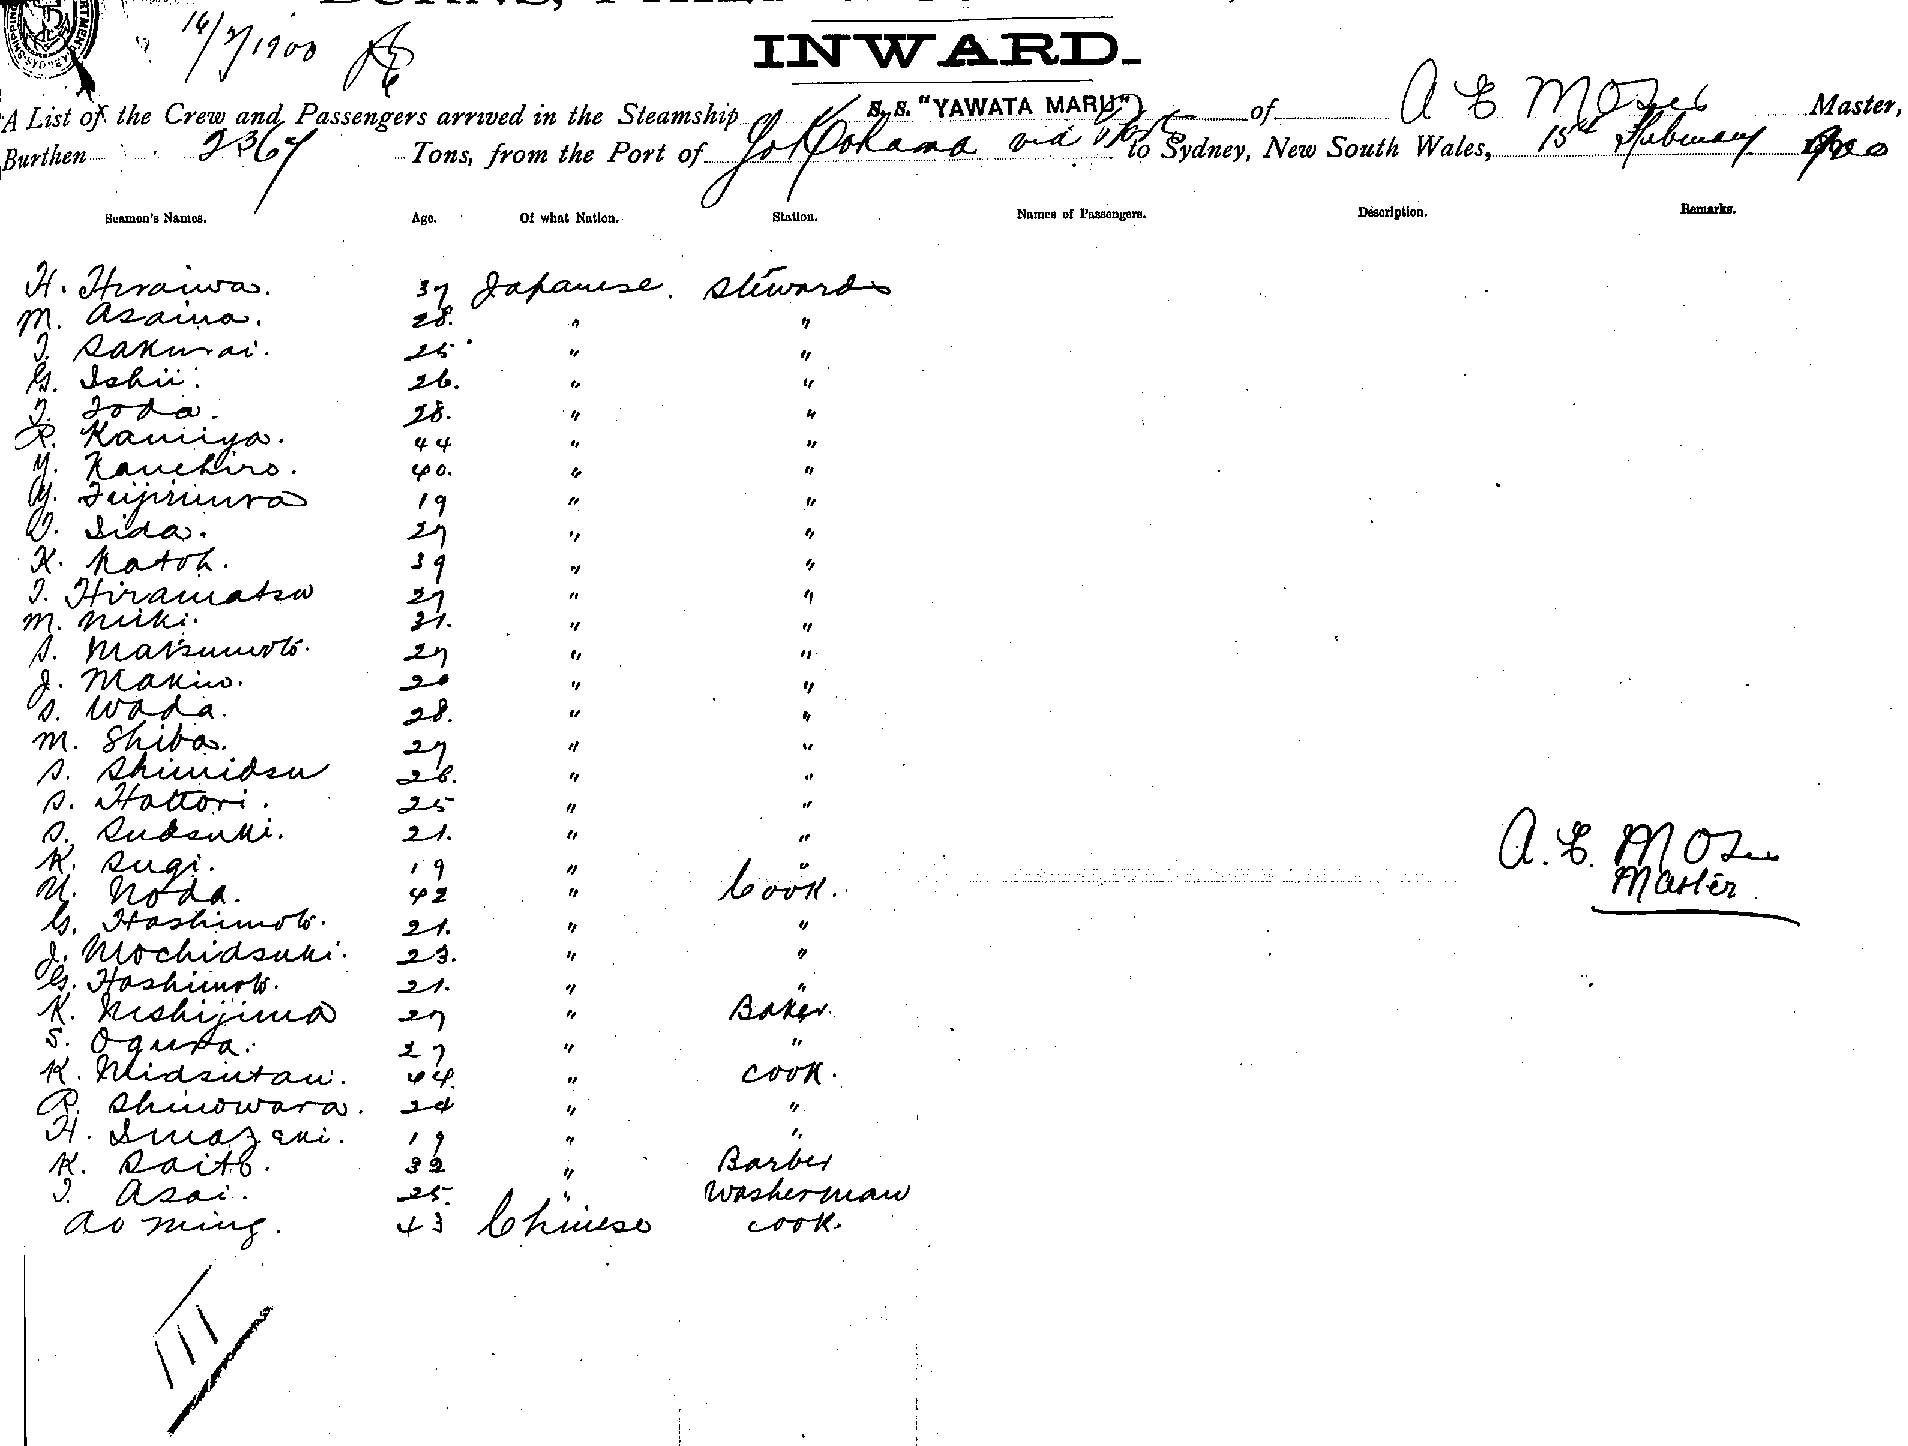 INWARD.
16/2/1900
A List of the Crew and Passengers arrived in the Steamship S.S. "YAWATA MARU" of A E Moses Master,
Burthen 2364 Tons, from the Port of Yokohama via Ports to Sydney, New South Wales, 15th February 1900
Seamen's Names. Age. Of what Nation. Station. Names of Passengers. Description. Remarks.
H. Hiraiwa. 37 Japanese. Stewards
M. Asaina. 28. " "
T. Sakurai. 25 " "
G. Ishii. 26. " "
T. Toda. 28. " "
R. Kamiya. 44 " "
Y. Kanehiro. 40. " "
Y. Fujimura 19 " "
Iida. 27 " "
K. Katoh. 39 " "
T. Hiramatsu 27 " "
M. Niiki. 31. " "
S. Matsumoto. 27 " "
J. Makino. 20 " "
S. Wada. 28. " "
M. Shiba. 27 " "
S. Shimidsu 26. " "
S. Hattori. 25 " "
S. Sudsuki. 21. " "
K. Sugi. 19 " "
N. Noda. 42 " Cook.
G. Hashimoto. 21. " "
J. Mochidsuki. 23. " "
G. Hashimoto. 21. " "
K. Nishijima 27 " Baker.
S. Ogura. 27 " "
K. Midsutani. 44. " cook.
R. Shinowara. 24 " "
H. Imazeki. 19 " "
K. Saito. 32 " Barber
T. Asai. 25. " Washerman
Ao Ming. 43 Chinese cook.
A. E. Moses
Master